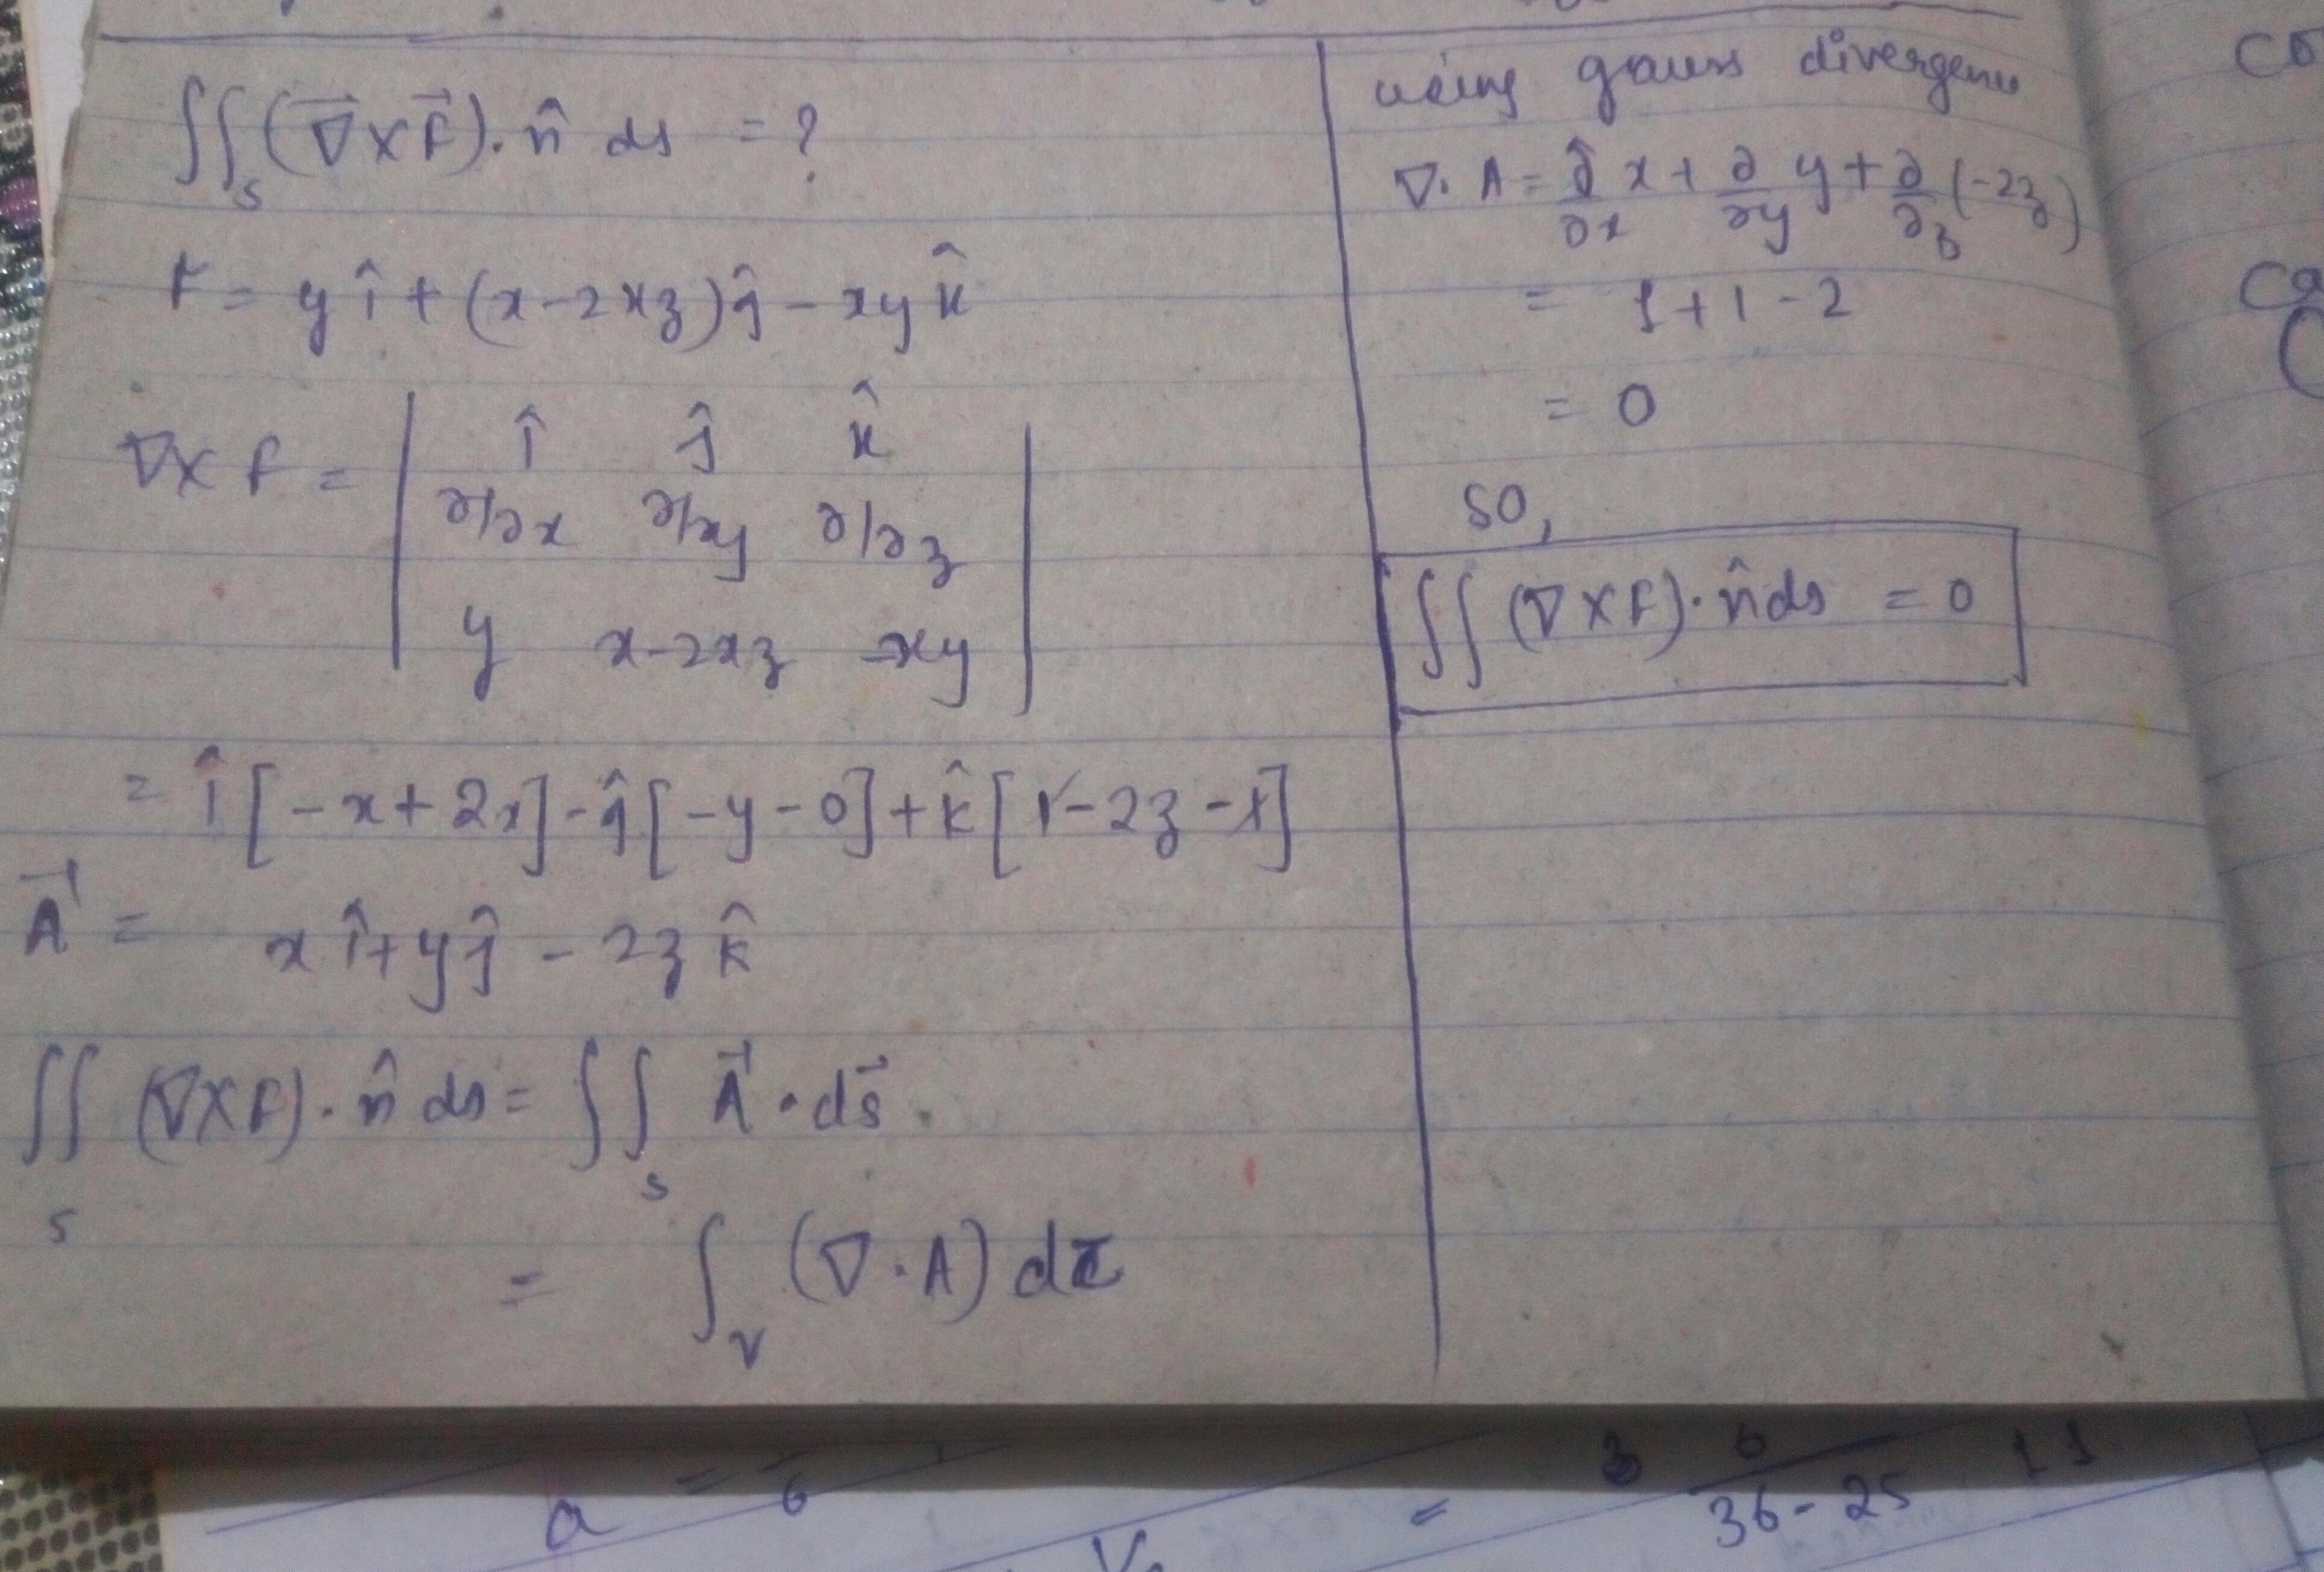 ∬_S (∇⃗ × F⃗). n̂ ds = ?
F = y î + (x - 2xz) ĵ - xy k̂
∇ × F = | î ĵ k̂ |
| ∂/∂x ∂/∂y ∂/∂z |
| y x-2xz -xy |
= î [-x + 2x] - ĵ [-y - 0] + k̂ [1 - 2z - 1]
A⃗ = x î + y ĵ - 2z k̂
∬_S (∇ × F). n̂ ds = ∬_S A⃗ · ds⃗.
= ∫_V (∇ . A) dτ
using gauss divergence
∇. A = ∂/∂x x + ∂/∂y y + ∂/∂z (-2z)
= 1 + 1 - 2
= 0
SO,
∬ (∇ × F). n̂ ds = 0
a = - 6
= 6
36 - 25 11